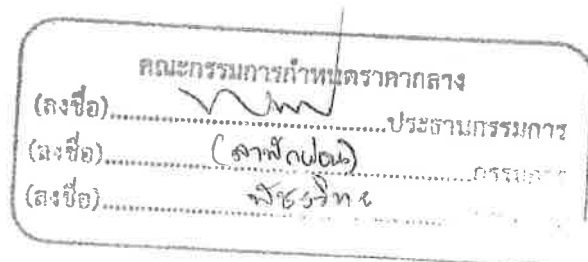 คณะกรรมการกำหนดราคากลาง
(ลงชื่อ)..............................ประธานกรรมการ
(ลงชื่อ)......(ลาพักผ่อน)..............กรรมการ
(ลงชื่อ)..............................